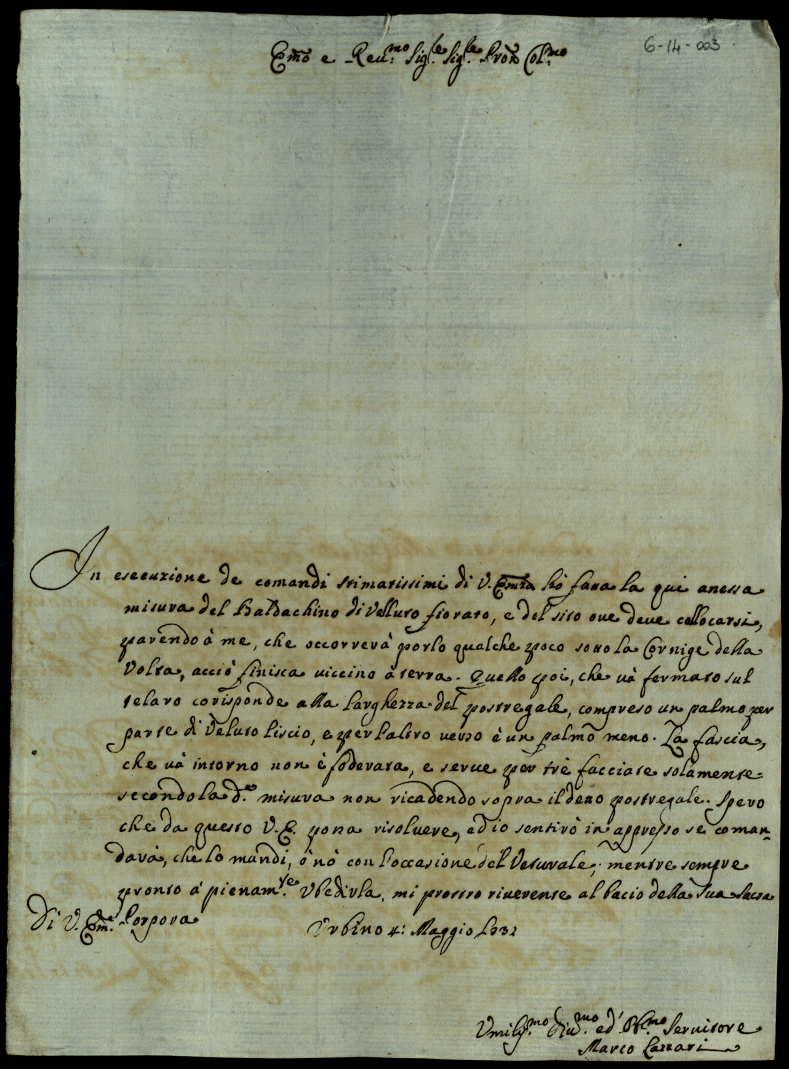 6-14-003
Em̃o e Reu.mo Sig.re Sig.re Pron Col.mo
In esecuzione de comandi stimatissimi di V. Em̃za hò fatta la qui anessa
misura del Baldachino di Velluto fiorato, e del sito oue deue collocarsi,
parendo à me, che occorrerà porlo qualche poco sotto la Cornige della
Volta, acciò finisca uiccino à terra. Quello poi, che uà fermato sul
telaro corisponde alla larghezza del postregale, compreso un palmo per
parte di Veluto liscio, e per l'altro uerso è un palmo meno. La fascia,
che uà intorno non è foderata, e serue per trè facciate solamente
secondo la d.a misura non ricadendo sopra il detto postregale. Spero
che da questo V. E. possa risoluere, ed io sentirò in appresso se coman-
darà, che lo mandi, ò nò con l'occasione del Veturale; mentre sempre
pronto à pienam.te Vbedirla, mi prostro riuerente al bacio della Sua Sacra
Porpora
Di V. Em.
Vrbino 4: Maggio
Vmiliss.mo Diu.mo ed' Obl.mo Seruitore
Marco Lazzari